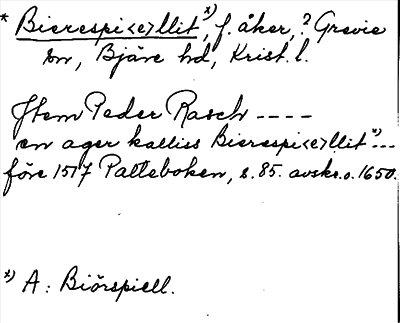 * Bierespi<e>llit *), f. åker, ? Grevie
sn, Bjäre hd, Krist. l.
Jtem Peder Rasch ----
en ager kalliss Bierespi<e>llit *) ...
före 1517 Palteboken, s. 85. avskr. o. 1650.
*) A: Biörspiell.